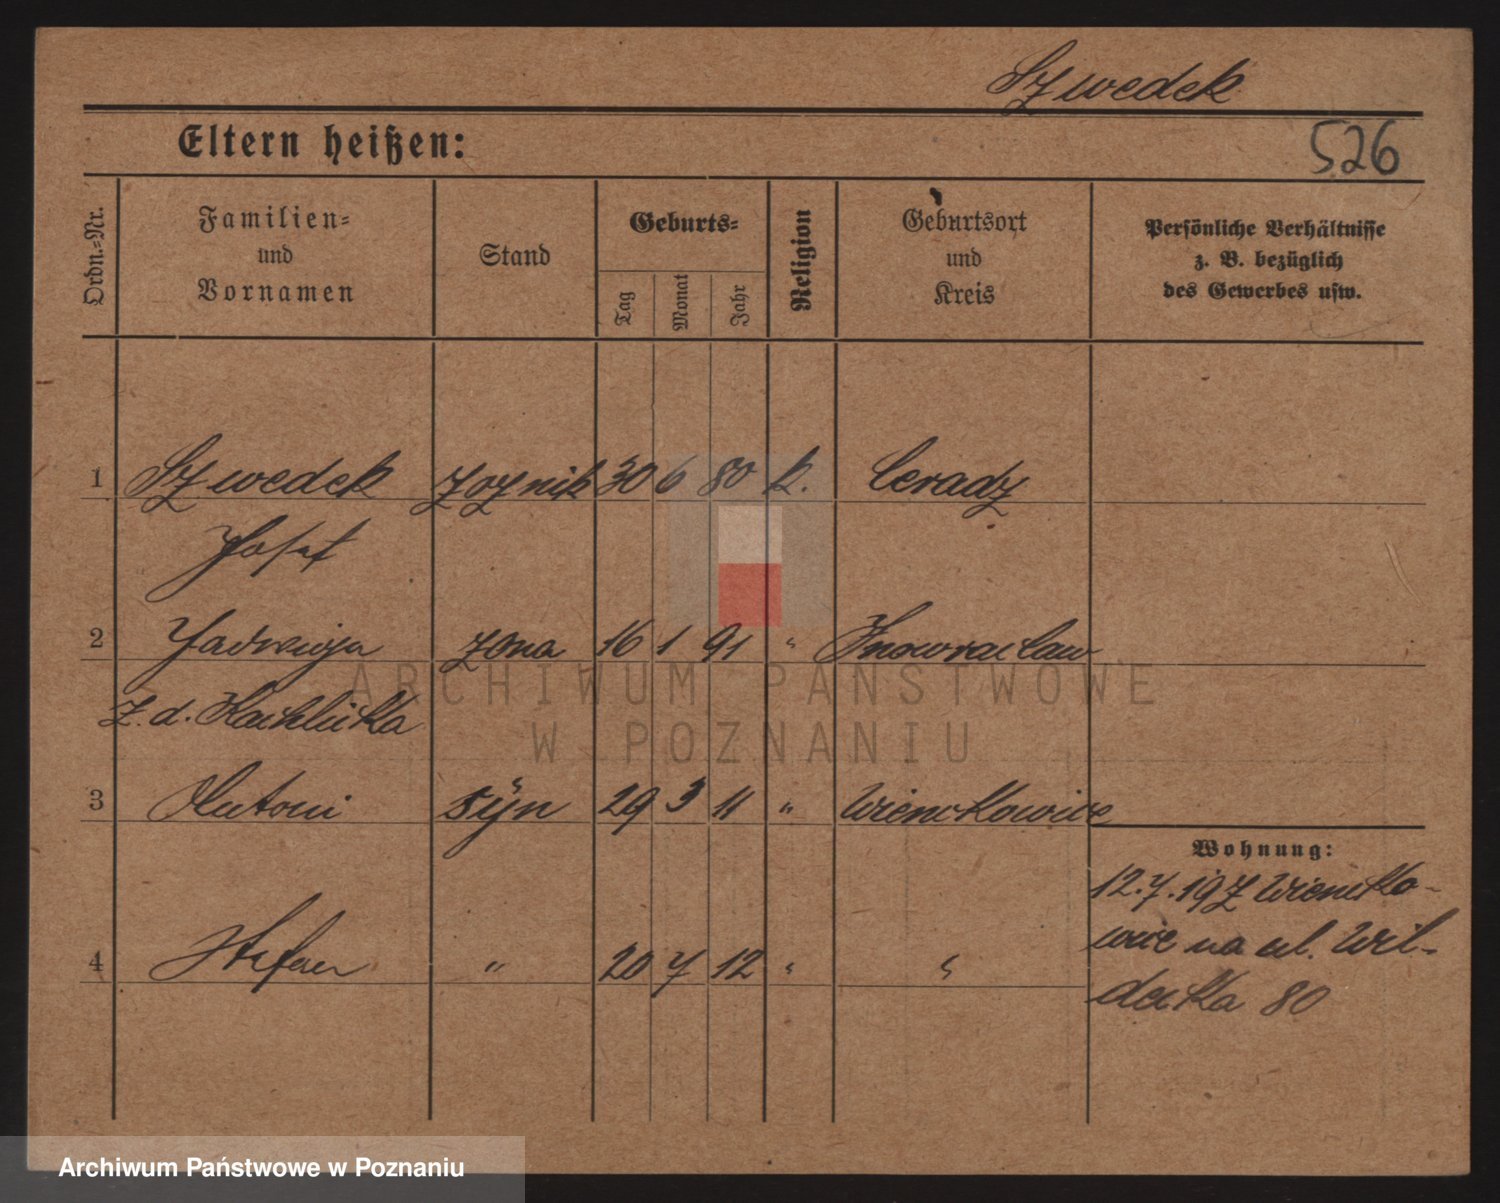 Szwedek
526
Eltern heißen:
Ordn.-Nr.
Familien- und Vornamen
Stand
Geburts-
Tag
Monat
Jahr
Religion
Geburtsort und Kreis
Persönliche Verhältnisse z. B. bezüglich des Gewerbes usw.
1 Szwedek 30 6 80 k. Ceradz
Josef
2 Jadwiga zona 16 1 91 " Inowraclaw
z. d.
3 Antoni syn 29 3 11 "
Wohnung:
12.7.19
na ul. Wil-
4 Stefan " 20 7 12 " "
decka 80
ARCHIWUM PAŃSTWOWE
W POZNANIU
Archiwum Państwowe w Poznaniu